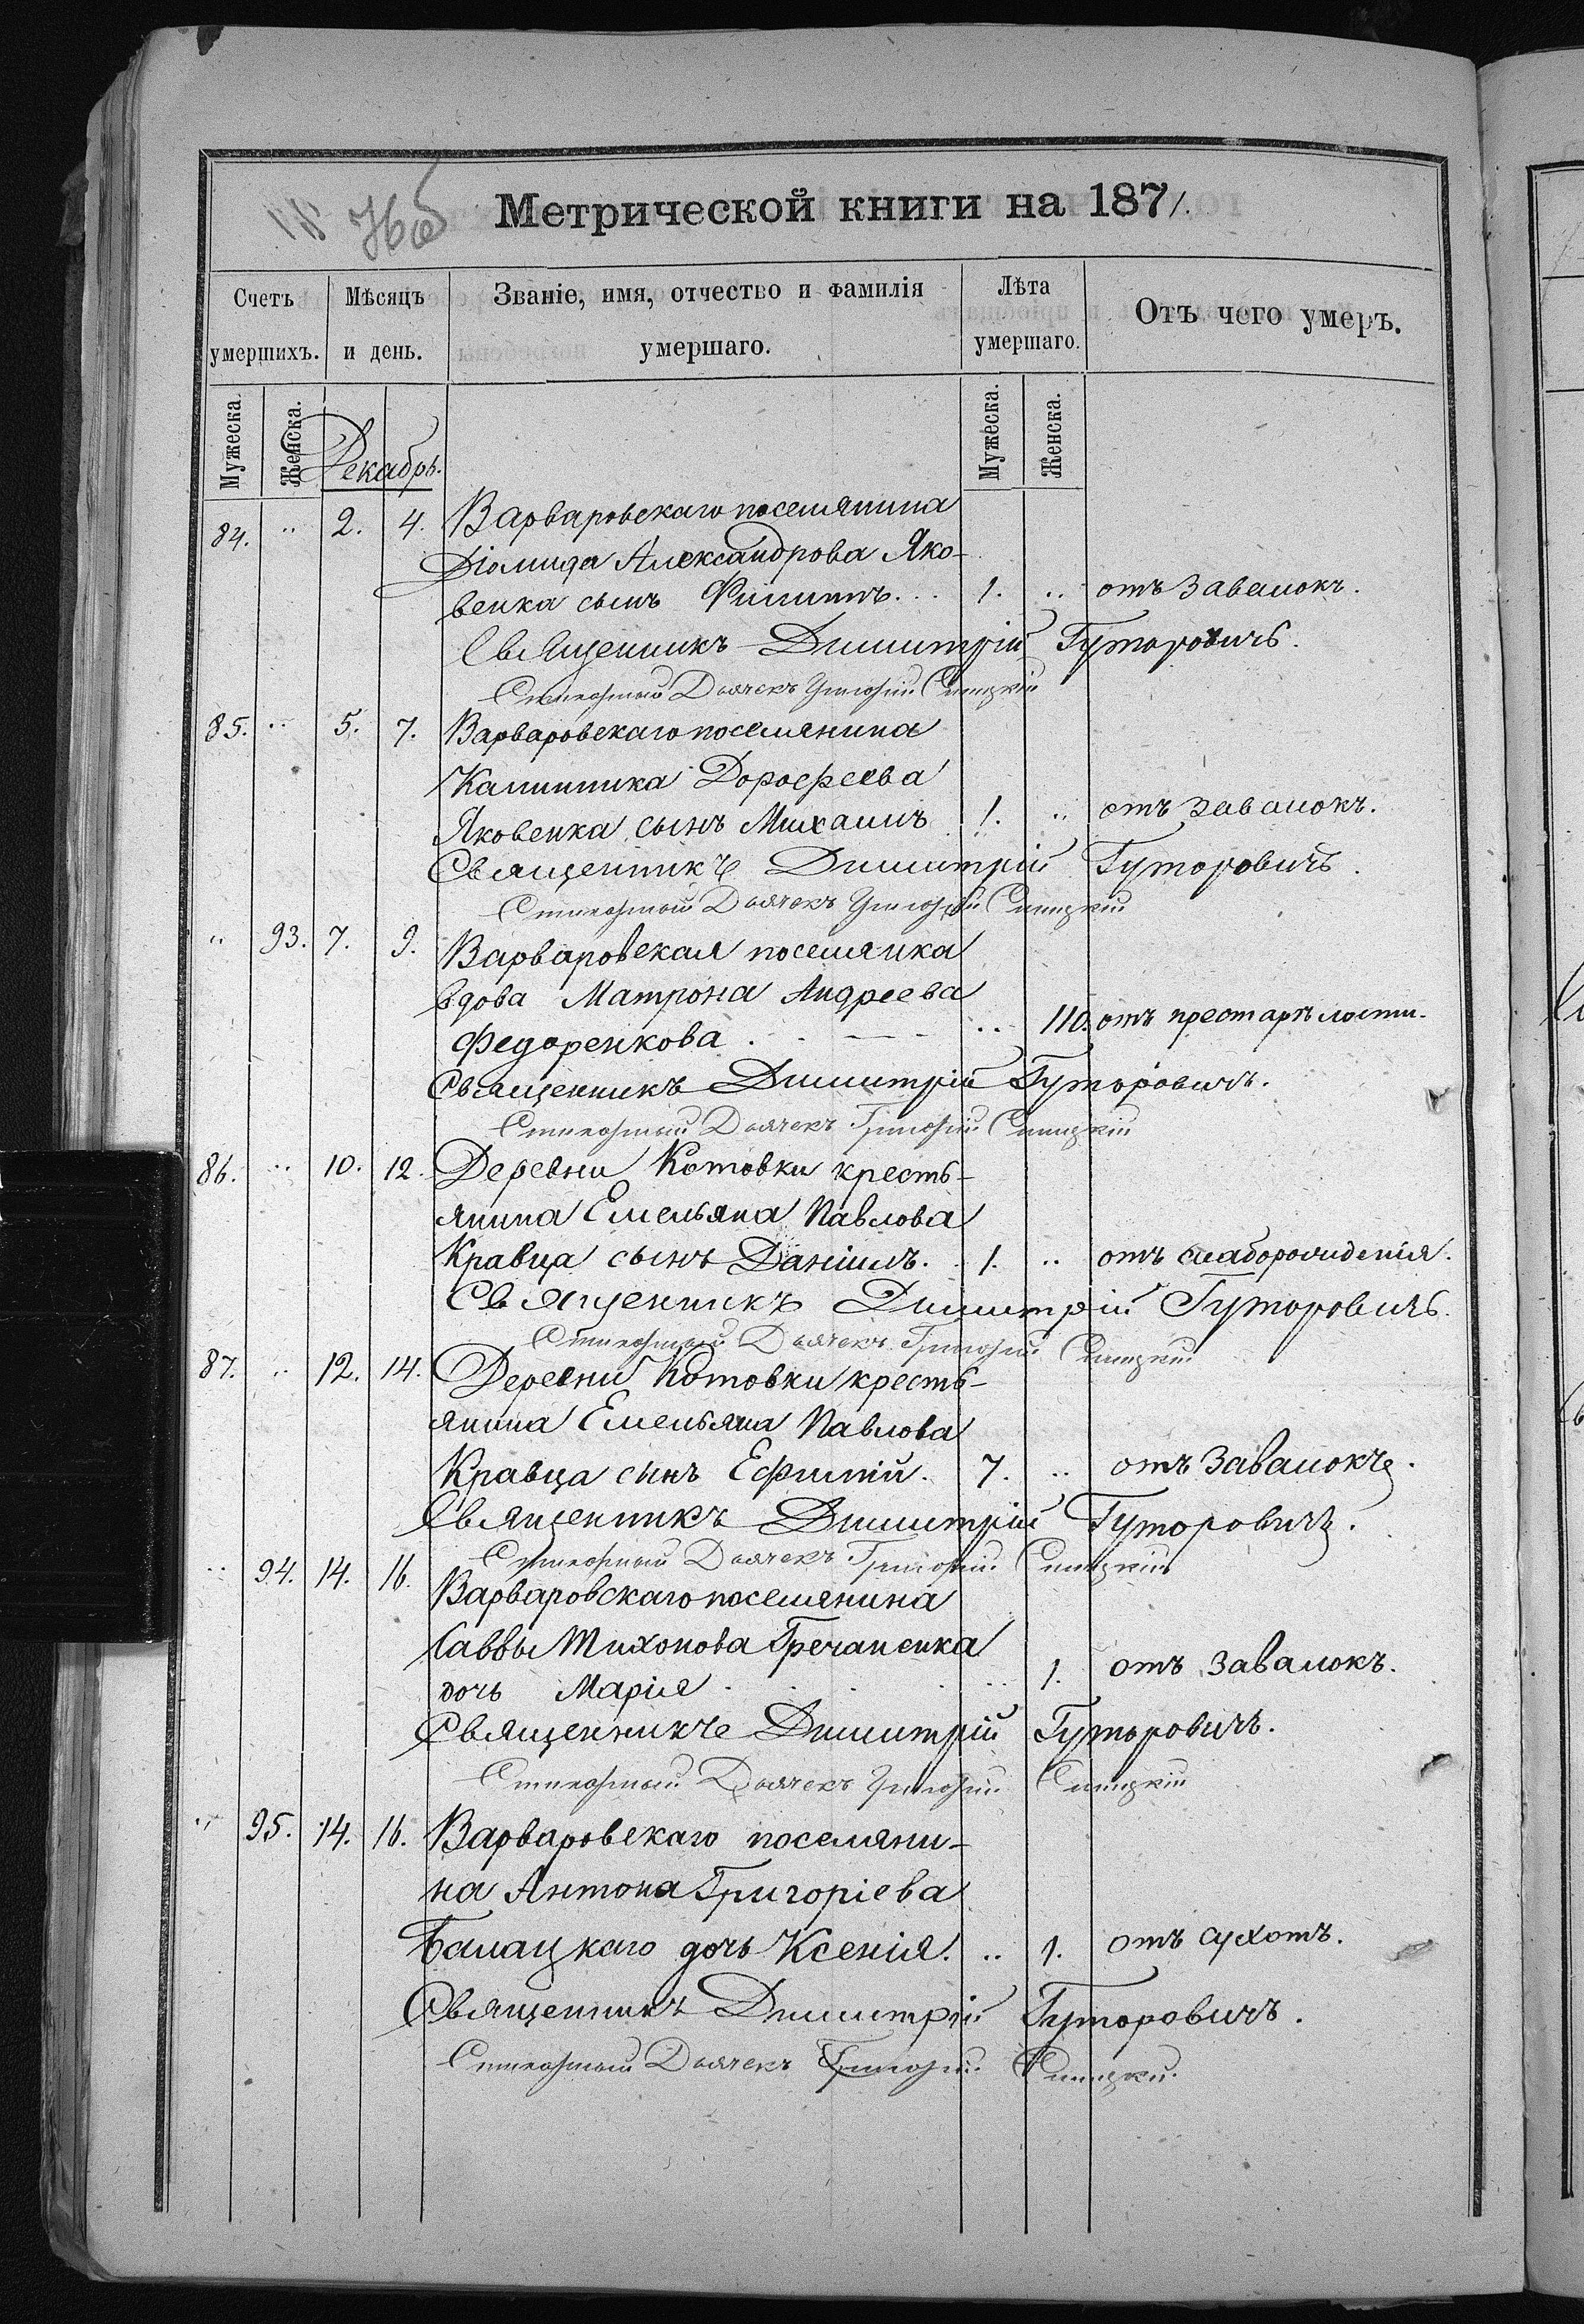 № 76об
Метрической книги на 1871.
Счетъ умершихъ.
Мѣсяцъ и день.
Званіе, имя, отчество и фамилія умершаго.
Лѣта умершаго.
Отъ чего умеръ.
Мужеска. Женска. Декабрь. Мужеска. Женска.
84. " 2. 4. Варваровскаго поселянина
Діомида Александрова Яко-
венка сынъ Филиппъ... 1. " отъ завалокъ.
Священникъ Димитрій Гуторовичъ.
Стихарный Дьячекъ Григорій
85. " 5. 7. Варваровскаго поселянина
Калинника Дорофеева
Яковенка сынъ Михаилъ 1. " отъ завалокъ.
Священникъ Димитрій Гуторовичъ.
Стихарный Дьячекъ Григорій
" 93. 7. 9. Варваровская поселянка
вдова Матрона Андреева
Федоренкова . . — - " 110. отъ престарѣлости.
Священникъ Димитрій Гуторовичъ.
Стихарный Дьячекъ Григорій
86. " 10. 12. Деревни Котовки кресть-
янина Емельяна Павлова
Кравца сынъ Даніилъ. . 1. " отъ слаборожденія.
Священникъ Димитрій Гуторовичъ.
Стихарный Дьячекъ Григорій
87. " 12. 14. Деревни Котовки кресть-
янина Емельяна Павлова
Кравца сынъ Ефимій. 7. " отъ завалокъ.
Священникъ Димитрій Гуторовичъ.
Стихарный Дьячекъ Григорій
" 94. 14. 16. Варваровскаго поселянина
Саввы Тихонова Гречаненка
дочь Марія . . . . " 1. отъ завалокъ.
Священникъ Димитрій Гуторовичъ.
Стихарный Дьячекъ Григорій
" 95. 14. 16. Варваровскаго поселяни-
на Антона Григоріева
Балацкаго дочь Ксенія. " 1. отъ сухотъ.
Священникъ Димитрій Гуторовичъ.
Стихарный Дьячекъ Григорій